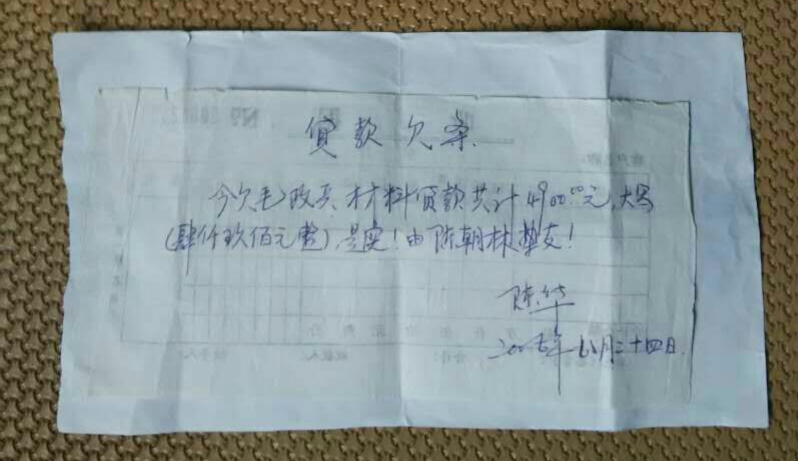 货款欠条
今欠毛政兵材料货款共计4900.00元,大写
(肆仟玖佰元整),是实!由陈朝林垫支!
陈华
月二十四日